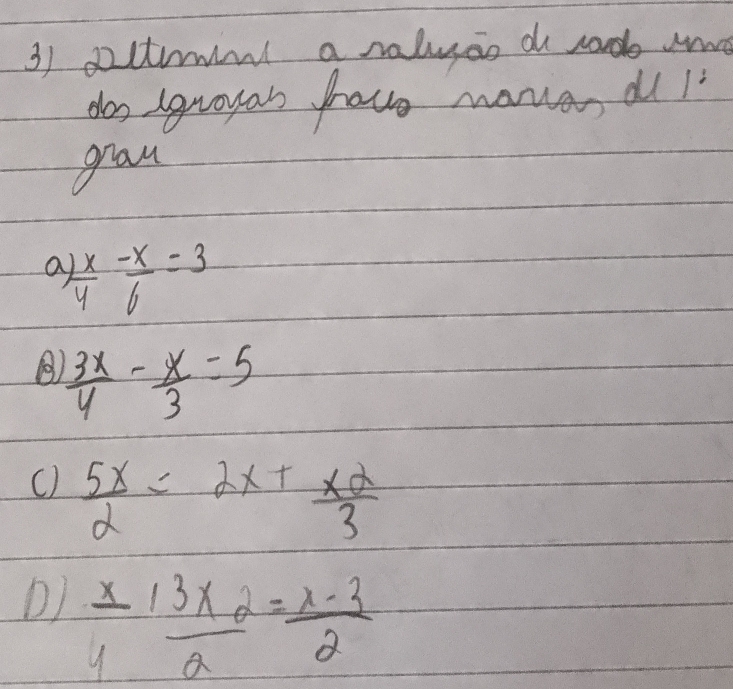 3) Determine a solução de cada uma
das equações fracionárias de 1º
grau
a) x/4 - x/6 = 3
B) 3x/4 - x/3 = 5
C) 5x/2 = 2x + x2/3
D) x/4 + 3x2/2 = x-3/2